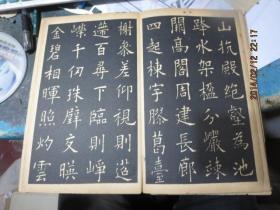 山抗殿絶壑為池
跨水架楹分巖竦
闕高閣周建長廊
四起棟宇膠葛臺
榭參差仰視則迢
遞百尋下臨則崢
嶸千仞珠璧交暎
金碧相暉照灼雲